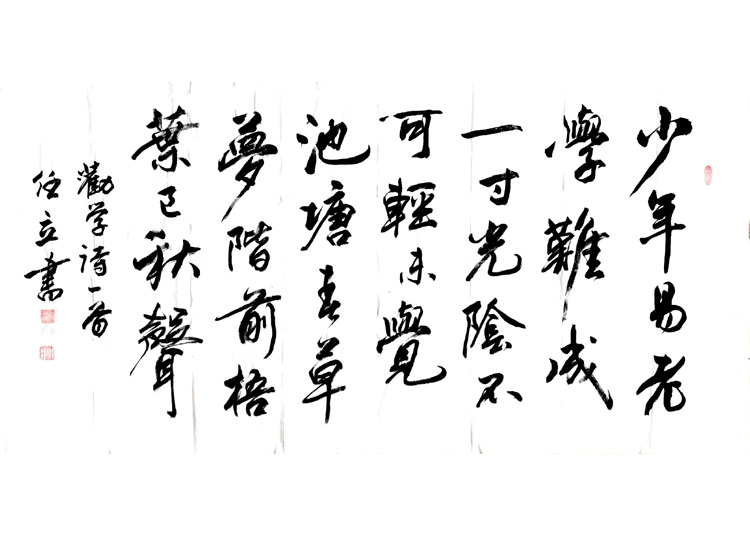 少年易老
學難成
一寸光陰不
可輕未覺
池塘春草
夢階前梧
葉已秋聲
勸学诗一首
任立書